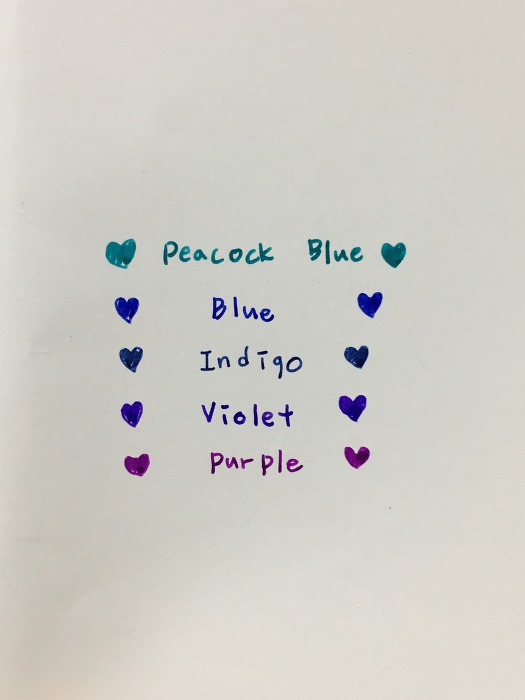 Peacock Blue
Blue
Indigo
Violet
Purple